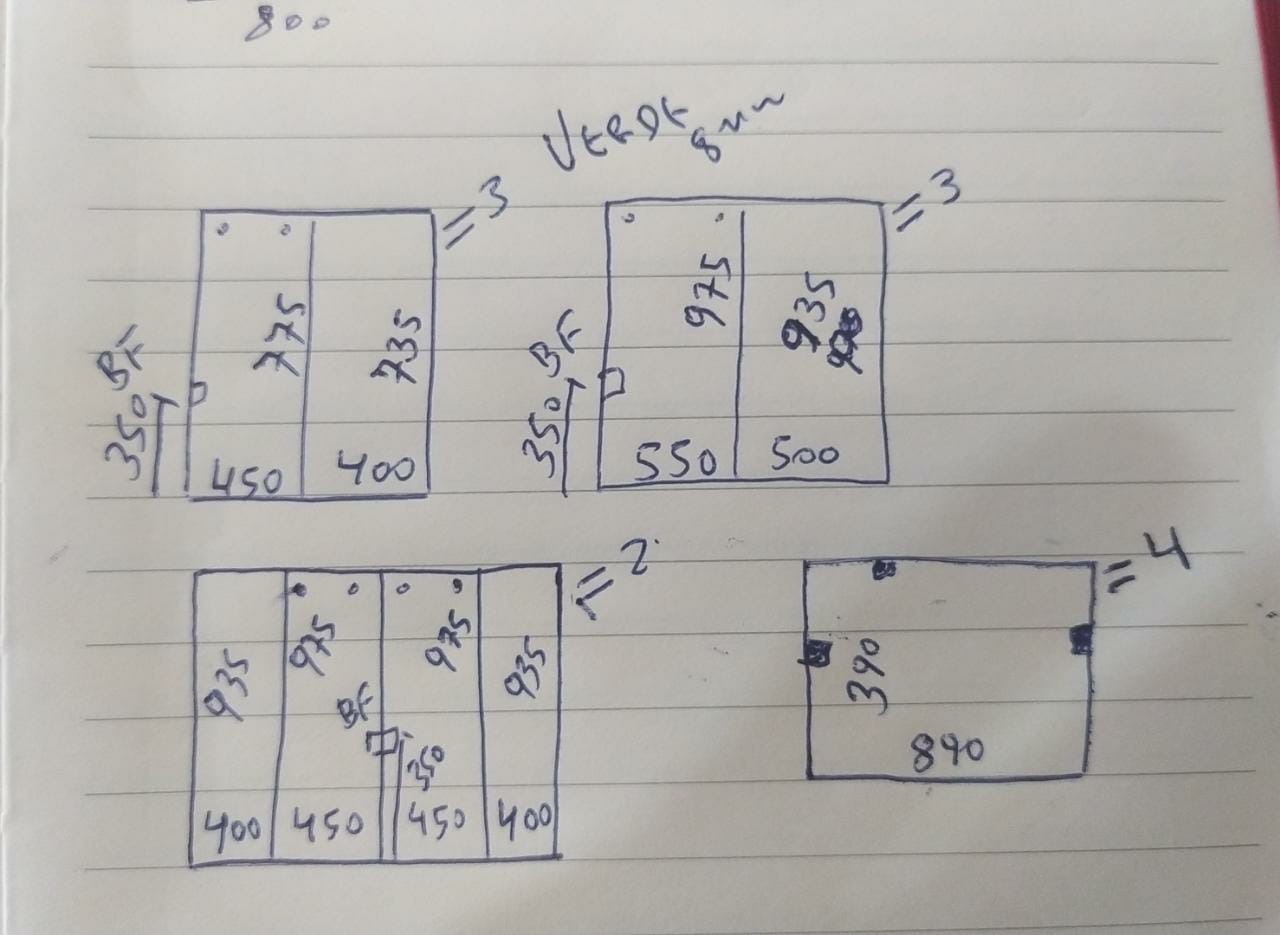 800
VERDE 8mm
=3
=3
BF
350
775
735
450
400
BF
350
975
935
550
500
=2
=4
935
975
975
935
BF
350
400
450
450
400
390
890